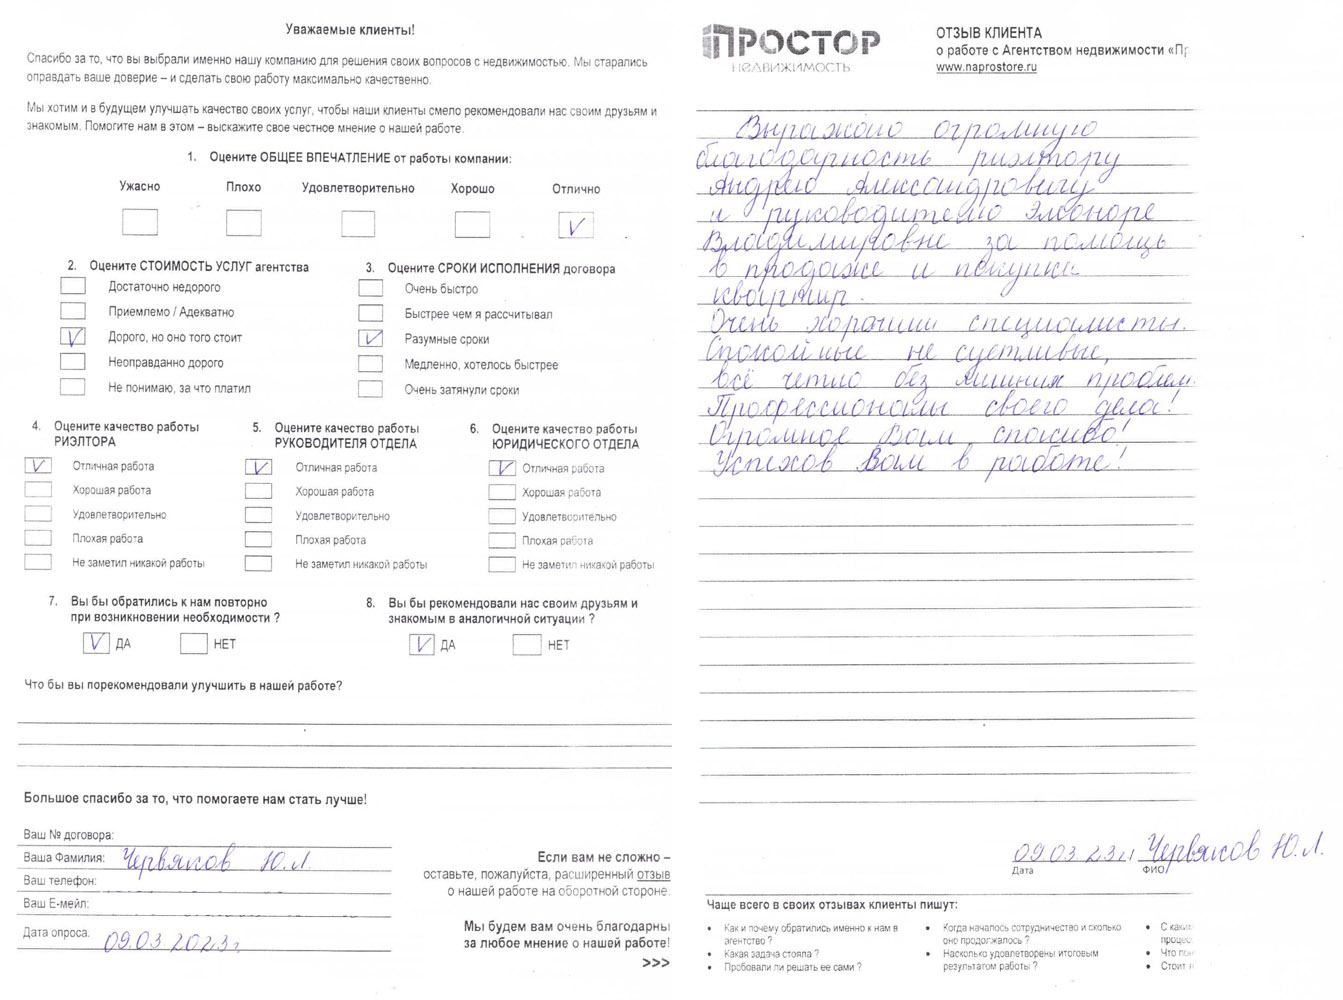 Уважаемые клиенты!
Спасибо за то, что вы выбрали именно нашу компанию для решения своих вопросов с недвижимостью. Мы старались
оправдать ваше доверие – и сделать свою работу максимально качественно.
Мы хотим и в будущем улучшать качество своих услуг, чтобы наши клиенты смело рекомендовали нас своим друзьям и
знакомым. Помогите нам в этом – выскажите свое честное мнение о нашей работе.
1. Оцените ОБЩЕЕ ВПЕЧАТЛЕНИЕ от работы компании:
Ужасно Плохо Удовлетворительно Хорошо Отлично
2. Оцените СТОИМОСТЬ УСЛУГ агентства
Достаточно недорого
Приемлемо / Адекватно
Дорого, но оно того стоит
Неоправданно дорого
Не понимаю, за что платил
3. Оцените СРОКИ ИСПОЛНЕНИЯ договора
Очень быстро
Быстрее чем я рассчитывал
Разумные сроки
Медленно, хотелось быстрее
Очень затянули сроки
4. Оцените качество работы
РИЭЛТОРА
Отличная работа
Хорошая работа
Удовлетворительно
Плохая работа
Не заметил никакой работы
5. Оцените качество работы
РУКОВОДИТЕЛЯ ОТДЕЛА
Отличная работа
Хорошая работа
Удовлетворительно
Плохая работа
Не заметил никакой работы
6. Оцените качество работы
ЮРИДИЧЕСКОГО ОТДЕЛА
Отличная работа
Хорошая работа
Удовлетворительно
Плохая работа
Не заметил никакой работы
7. Вы бы обратились к нам повторно
при возникновении необходимости ?
ДА НЕТ
8. Вы бы рекомендовали нас своим друзьям и
знакомым в аналогичной ситуации ?
ДА НЕТ
Что бы вы порекомендовали улучшить в нашей работе?
Большое спасибо за то, что помогаете нам стать лучше!
Ваш № договора:
Ваша Фамилия: Червяков Ю.Л.
Ваш телефон:
Ваш Е-мейл:
Дата опроса: 09.03.2023г.
Если вам не сложно –
оставьте, пожалуйста, расширенный отзыв
о нашей работе на оборотной стороне.
Мы будем вам очень благодарны
за любое мнение о нашей работе!
>>>
ПРОСТОР
НЕДВИЖИМОСТЬ
ОТЗЫВ КЛИЕНТА
о работе с Агентством недвижимости «Пр
www.naprostore.ru
Выражаю огромную
благодарность риэлтору
Андрею Александровичу
и руководителю Элеоноре
Владимировне за помощь
в продаже и покупки
квартир.
Очень хорошии специалисты.
Спокойные не суетливые,
всё четко без лишних проблем.
Профессионалы своего дела!
Огромное Вам спасибо!
Успехов Вам в работе!
09.03.23г. Червяков Ю.Л.
Дата ФИО
Чаще всего в своих отзывах клиенты пишут:
• Как и почему обратились именно к нам в
агентство ?
• Какая задача стояла ?
• Пробовали ли решать ее сами ?
• Когда началось сотрудничество и сколько
оно продолжалось ?
• Насколько удовлетворены итоговым
результатом работы ?
• С каким
процес
• Что пон
• Стоит л